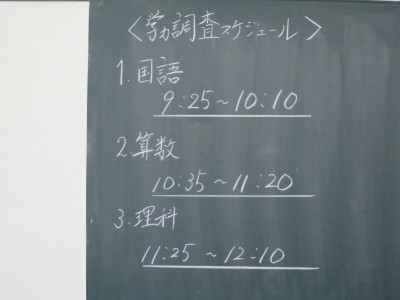 〈学力調査スケジュール〉
1.国語
9:25~10:10
2.算数
10:35~11:20
3.理科
11:25~12:10